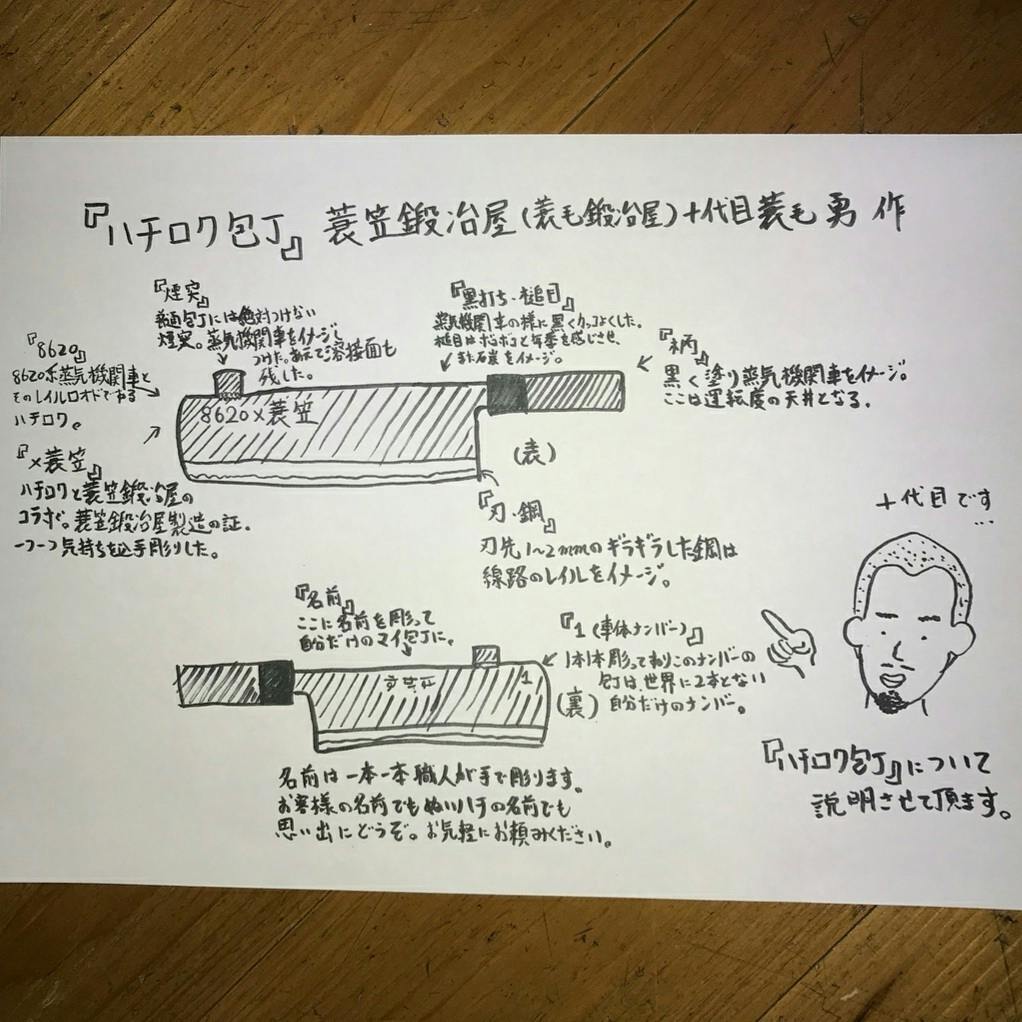 『ハチロク包丁』 蓑笠鍛冶屋(蓑毛鍛冶屋)十代目蓑毛 勇 作
『煙突』
普通包丁には絶対つけない
煙突。蒸気機関車をイメージし
つけた。あえて溶接面も
残した。
『黒打ち・槌目』
蒸気機関車の様に黒くカッコよくした。
槌目はボコボコと年季を感じさせ、
また石炭をイメージ。
『柄』
黒く塗り蒸気機関車をイメージ。
ここは運転席の天井となる。
『8620』
8620系蒸気機関車と
そのレイルロオドである
ハチロク。
8620×蓑笠
『×蓑笠』
ハチロクと蓑笠鍛冶屋の
コラボ。蓑笠鍛冶屋製造の証。
一つ一つ気持ちを込手彫りした。
(表)
『刃・鋼』
刃先1~2mmのギラギラした鋼は
線路のレイルをイメージ。
十代目です
…
『名前』
ここに名前を彫って
自分だけのマイ包丁に。
『1(車体ナンバー)』
1本1本彫ってありこのナンバーの
包丁は世界に2本とない
自分だけのナンバー。
1
(裏)
名前は一本一本職人が手で彫ります。
お客様の名前でもぬいハチの名前でも
思い出にどうぞ。お気軽にお頼みください。
『ハチロク包丁』について
説明させて頂ます。